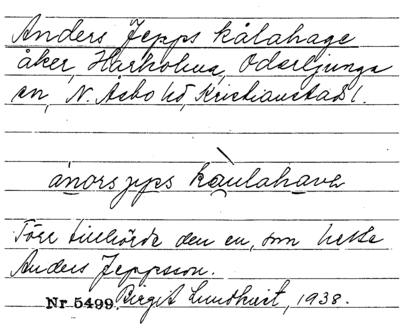 Anders Jepps kålahage
åker, Härkobua, Oderljunga
sn, N. Åsbo hd, Kristianstads l.
ánors jɪps kaulahava
Förr tillhörde den en, som hette
Anders Jeppsson.
Nr. 5499. Birgit Lundkvist, 1938.